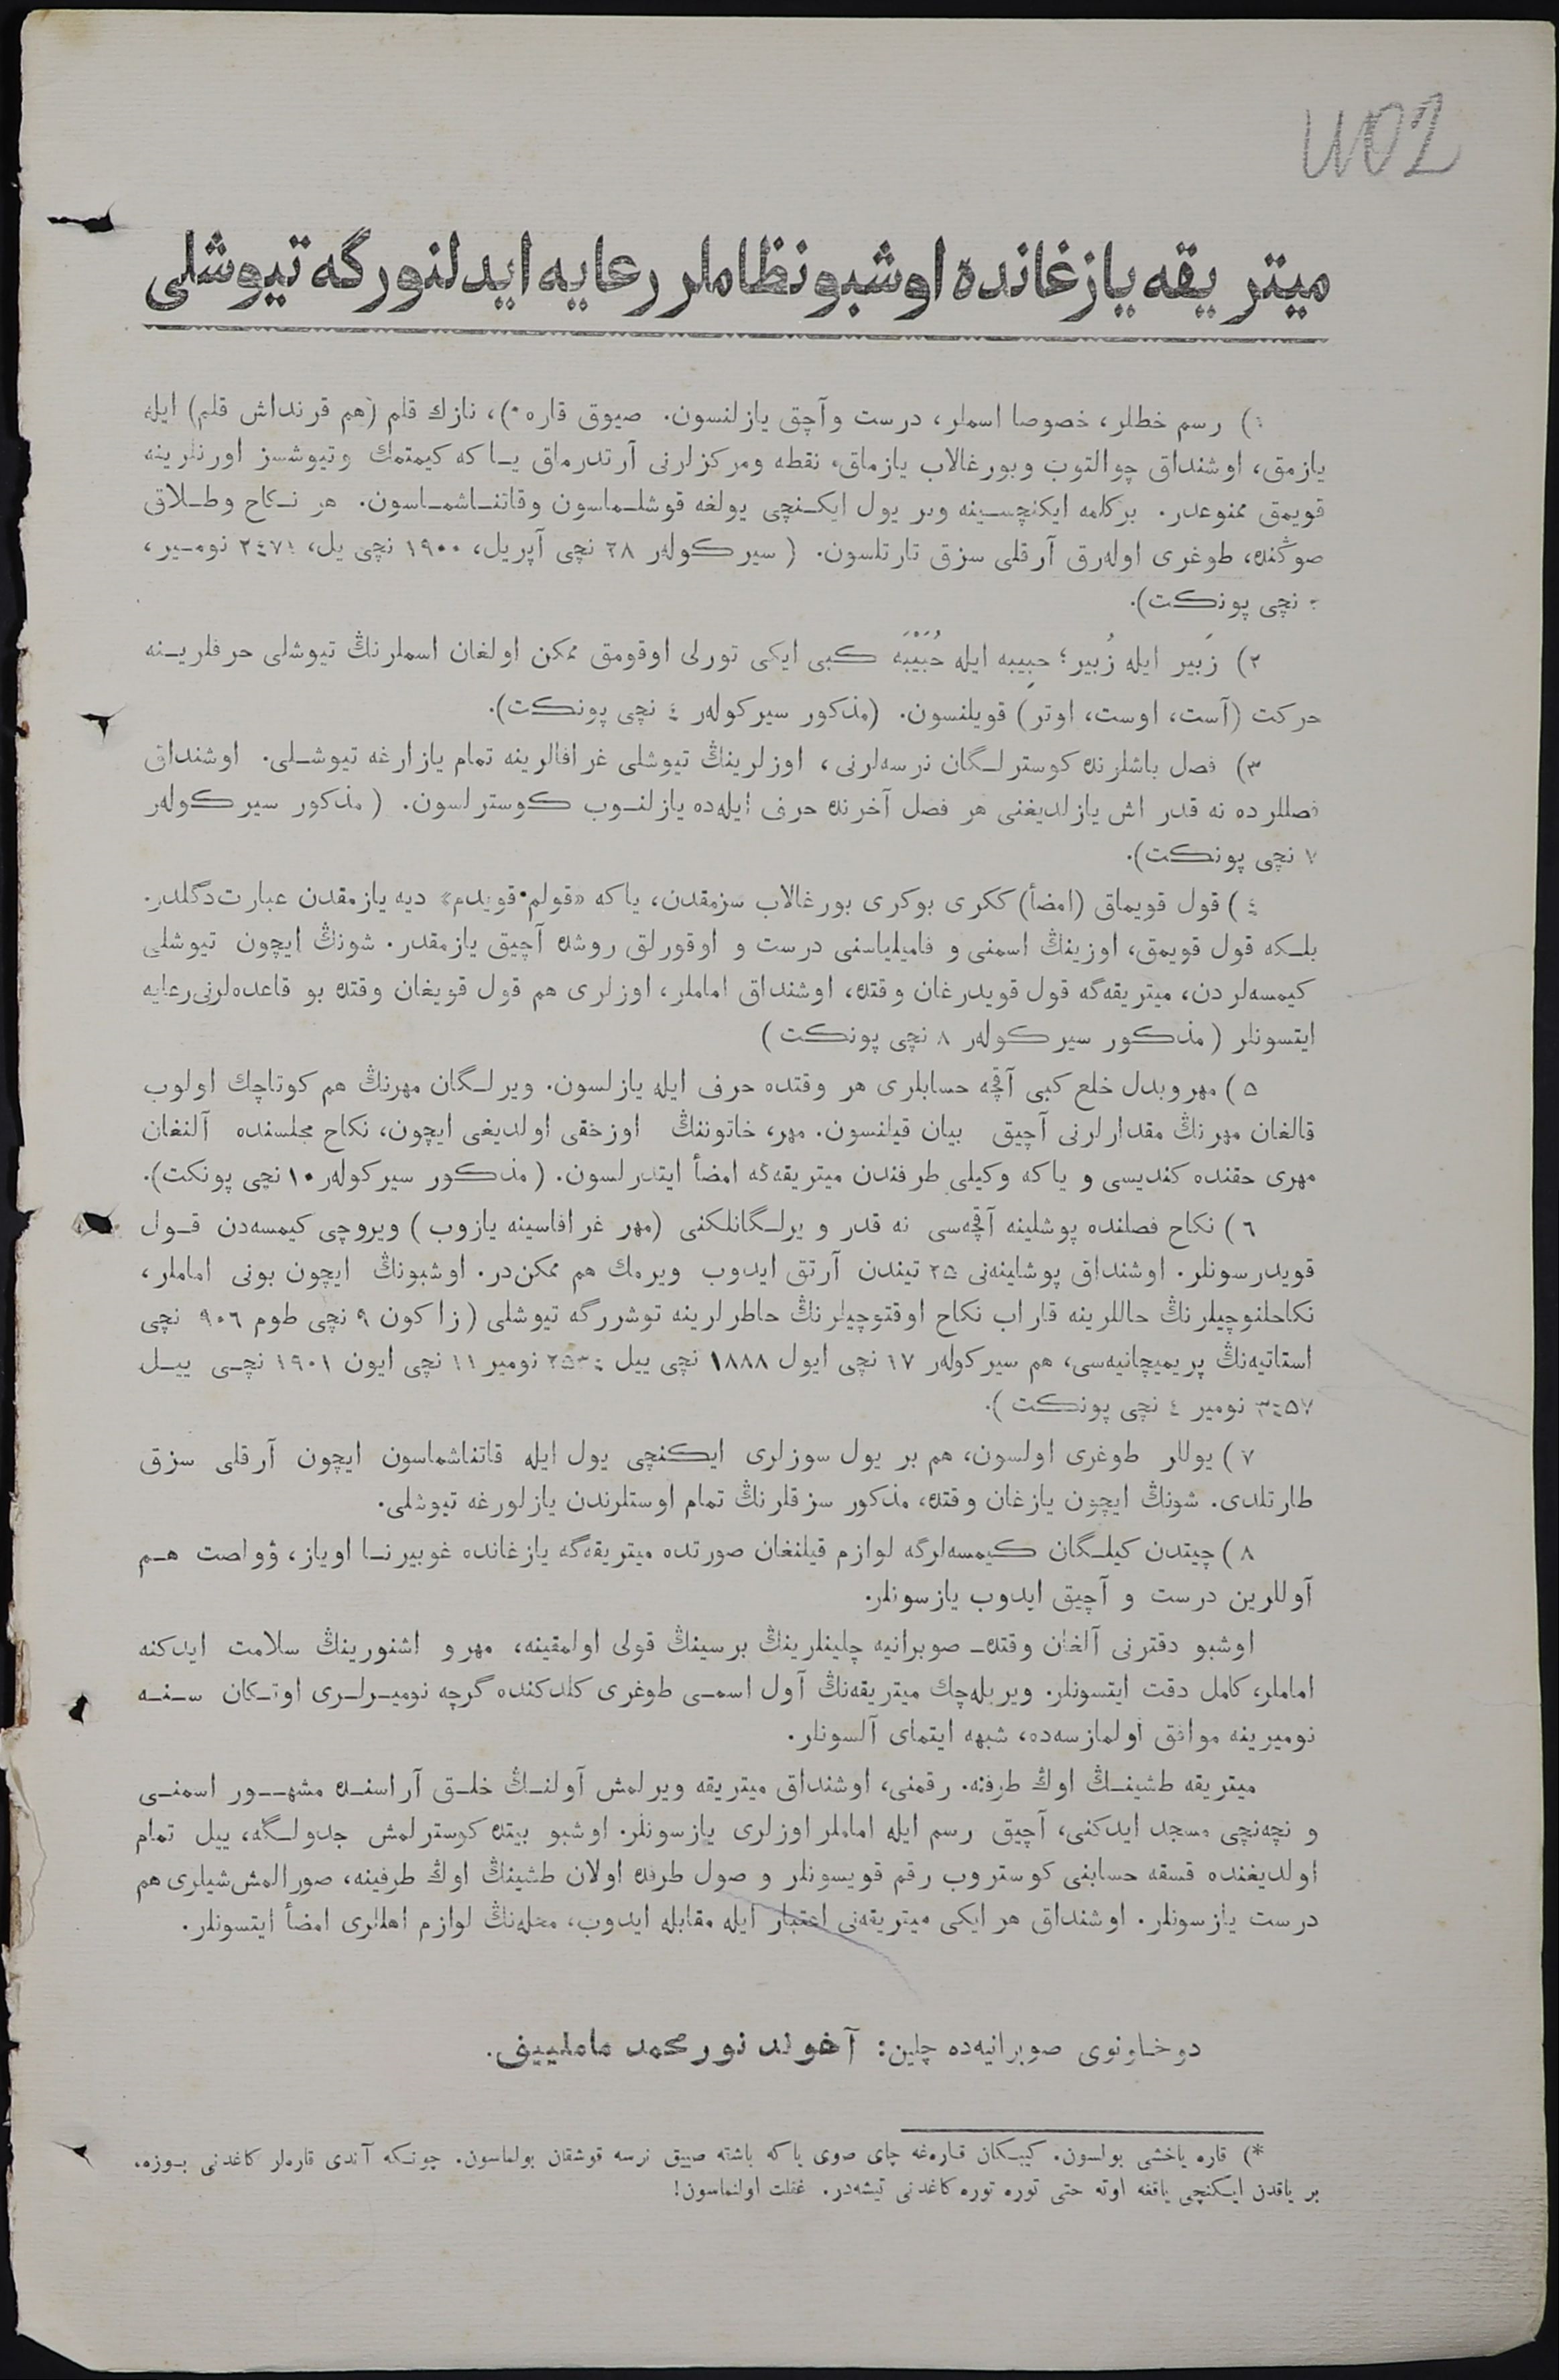 ميتريقه يازغانده اوشبو نظاملر رعايه ايدلنورگه تيوشلى
١) رسم خطلر، خصوصا اسملر، درست وآچق يازلنسون. صيوق قاره*)، نازك قلم (هم قرنداش قلم) ايله
يازمق، اوشنداق چوالتوب وبورغالاب يازماق، نقطه ومركزلرنى آرتدرماق ياكه كيمتمك وتيوشسز اورنلرينه
قويمق ممنوعدر. بركلمه ايكنچسينه وبر يول ايكنچى يولغه قوشلماسون وقاتناشماسون. هر نكاح وطلاق
صوڭنده، طوغرى اوله‌رق آرقلى سزق تارتلسون. (سيركولەر ٢٨ نچى آپريل، ١٩٠٠ نچى يل، نومير،
نچى پونكت).
٢) زَبير ايله زُبير؛ حبِيبه ايله حُبَيْبَه كبى ايكى تورلى اوقومق ممكن اولغان اسملرنڭ تيوشلى حرفلرينه
حركت (آست، اوست، اوتر) قويلنسون. (مذكور سيركولەر ٤ نچى پونكت).
٣) فصل باشلرنده كوسترلگان نرسه‌لرنى، اوزلرينڭ تيوشلى غرافالرينه تمام يازارغه تيوشلى. اوشنداق
فصللرده نه قدر اش يازلديغنى هر فصل آخرنده حرف ايله‌ده يازلنوب كوسترلسون. (مذكور سيركولەر
٧ نچى پونكت).
٤) قول قويماق (امضأ) ككرى بوكرى بورغالاب سزمقدن، ياكه «قولم قويدم» ديه يازمقدن عبارت دگلدر.
بلكه قول قويمق، اوزينڭ اسمنى و فاميلياسنى درست و اوقورلق روشده آچيق يازمقدر. شونڭ ايچون تيوشلى
كيمسه‌لردن، ميتريقه‌گه قول قويدرغان وقتده، اوشنداق اماملر، اوزلرى هم قول قويغان وقتده بو قاعده‌لرنى رعايه
ايتسونلر (مذكور سيركولەر ٨ نچى پونكت)
٥) مهر وبدل خلع كبى آقچه حسابلرى هر وقتده حرف ايله يازلسون. ويرلگان مهرنڭ هم كوتاچك اولوب
قالغان مهرنڭ مقدارلرنى آچيق بيان قيلنسون. مهر، خاتوننڭ اوزحقى اولديغى ايچون، نكاح مجلسنده آلنغان
مهرى حقنده كنديسى و ياكه وكيلى طرفندن ميتريقه‌گه امضأ ايتدرلسون. (مذكور سيركولەر ١٠ نچى پونكت).
٦) نكاح فصلنده پوشلينه آقچه‌سى نه قدر ويرلگانلكنى (مهر غرافاسينه يازوب) ويروچى كيمسه‌دن قول
قويدرسونلر. اوشنداق پوشلينه‌نى ٢٥ تيندن آرتق ايدوب ويرمك هم ممكن‌در. اوشبونڭ ايچون بونى اماملر،
نكاحلنوچيلرنڭ حاللرينه قاراب نكاح اوقتوچيلرنڭ خاطرلرينه توشررگه تيوشلى (زاكون ٩ نچى طوم ٩٠٦ نچى
استاتيه‌نڭ پريميچانيه‌سى، هم سيركولەر ١٧ نچى ايول ١٨٨٨ نچى ييل ٢٥٣٤ نومير ١١ نچى ايون ١٩٠١ نچى ييل
٣٤٥٧ نومير ٤ نچى پونكت).
٧) يوللر طوغرى اولسون، هم بر يول سوزلرى ايكنچى يول ايله قاتناشماسون ايچون آرقلى سزق
طارتلدى. شونڭ ايچون يازغان وقتده، مذكور سزقلرنڭ تمام اوستلرندن يازلورغه تيوشلى.
٨) چيتدن كيلگان كيمسه‌لرگه لوازم قيلنغان صورتده ميتريقه‌گه يازغانده غوبيرنا اوياز، ۇواصت هم
آوللرين درست و آچيق ايدوب يازسونلر.
اوشبو دفترنى آلغان وقتده صوبرانيه چلينلرينڭ برسينڭ قولى اولمقينه، مهر و اشنورينڭ سلامت ايدكنه
اماملر، كامل دقت ايتسونلر. ويريله‌چك ميتريقه‌نڭ آول اسمى طوغرى كلدكنده گرچه نوميرلرى اوتكان سنه
نوميرينه موافق اولمازسه‌ده، شبهه ايتماى آلسونلر.
ميتريقه طشينڭ اوڭ طرفنه. رقمنى، اوشنداق ميتريقه ويرلمش آولنڭ خلق آراسنده مشهور اسمنى
و نچه‌نچى مسجد ايدكنى، آچيق رسم ايله اماملر اوزلرى يازسونلر. اوشبو بيتده كوسترلمش جدولگه، ييل تمام
اولديغنده قسقه حسابنى كوستروب رقم قويسونلر و صول طرفده اولان طشينڭ اوڭ طرفينه، صورالمش شيلرى هم
درست يازسونلر. اوشنداق هر ايكى ميتريقه‌نى اعتبار ايله مقابله ايدوب، محله‌نڭ لوازم اهاللرى امضأ ايتسونلر.
دوخاونوى صوبرانيه‌ده چلين: آخوند نورمحمد ماملييف.
*) قاره ياخشى بولسون. كيبكان قاره‌غه چاى صوى ياكه باشته صييق نرسه قوشقان بولماسون. چونكه آندى قاره‌لر كاغدنى بوزه،
بر ياقدن ايكنچى ياقغه اوته حتى توره توره كاغدنى تيشه‌در. غفلت اولنماسون!